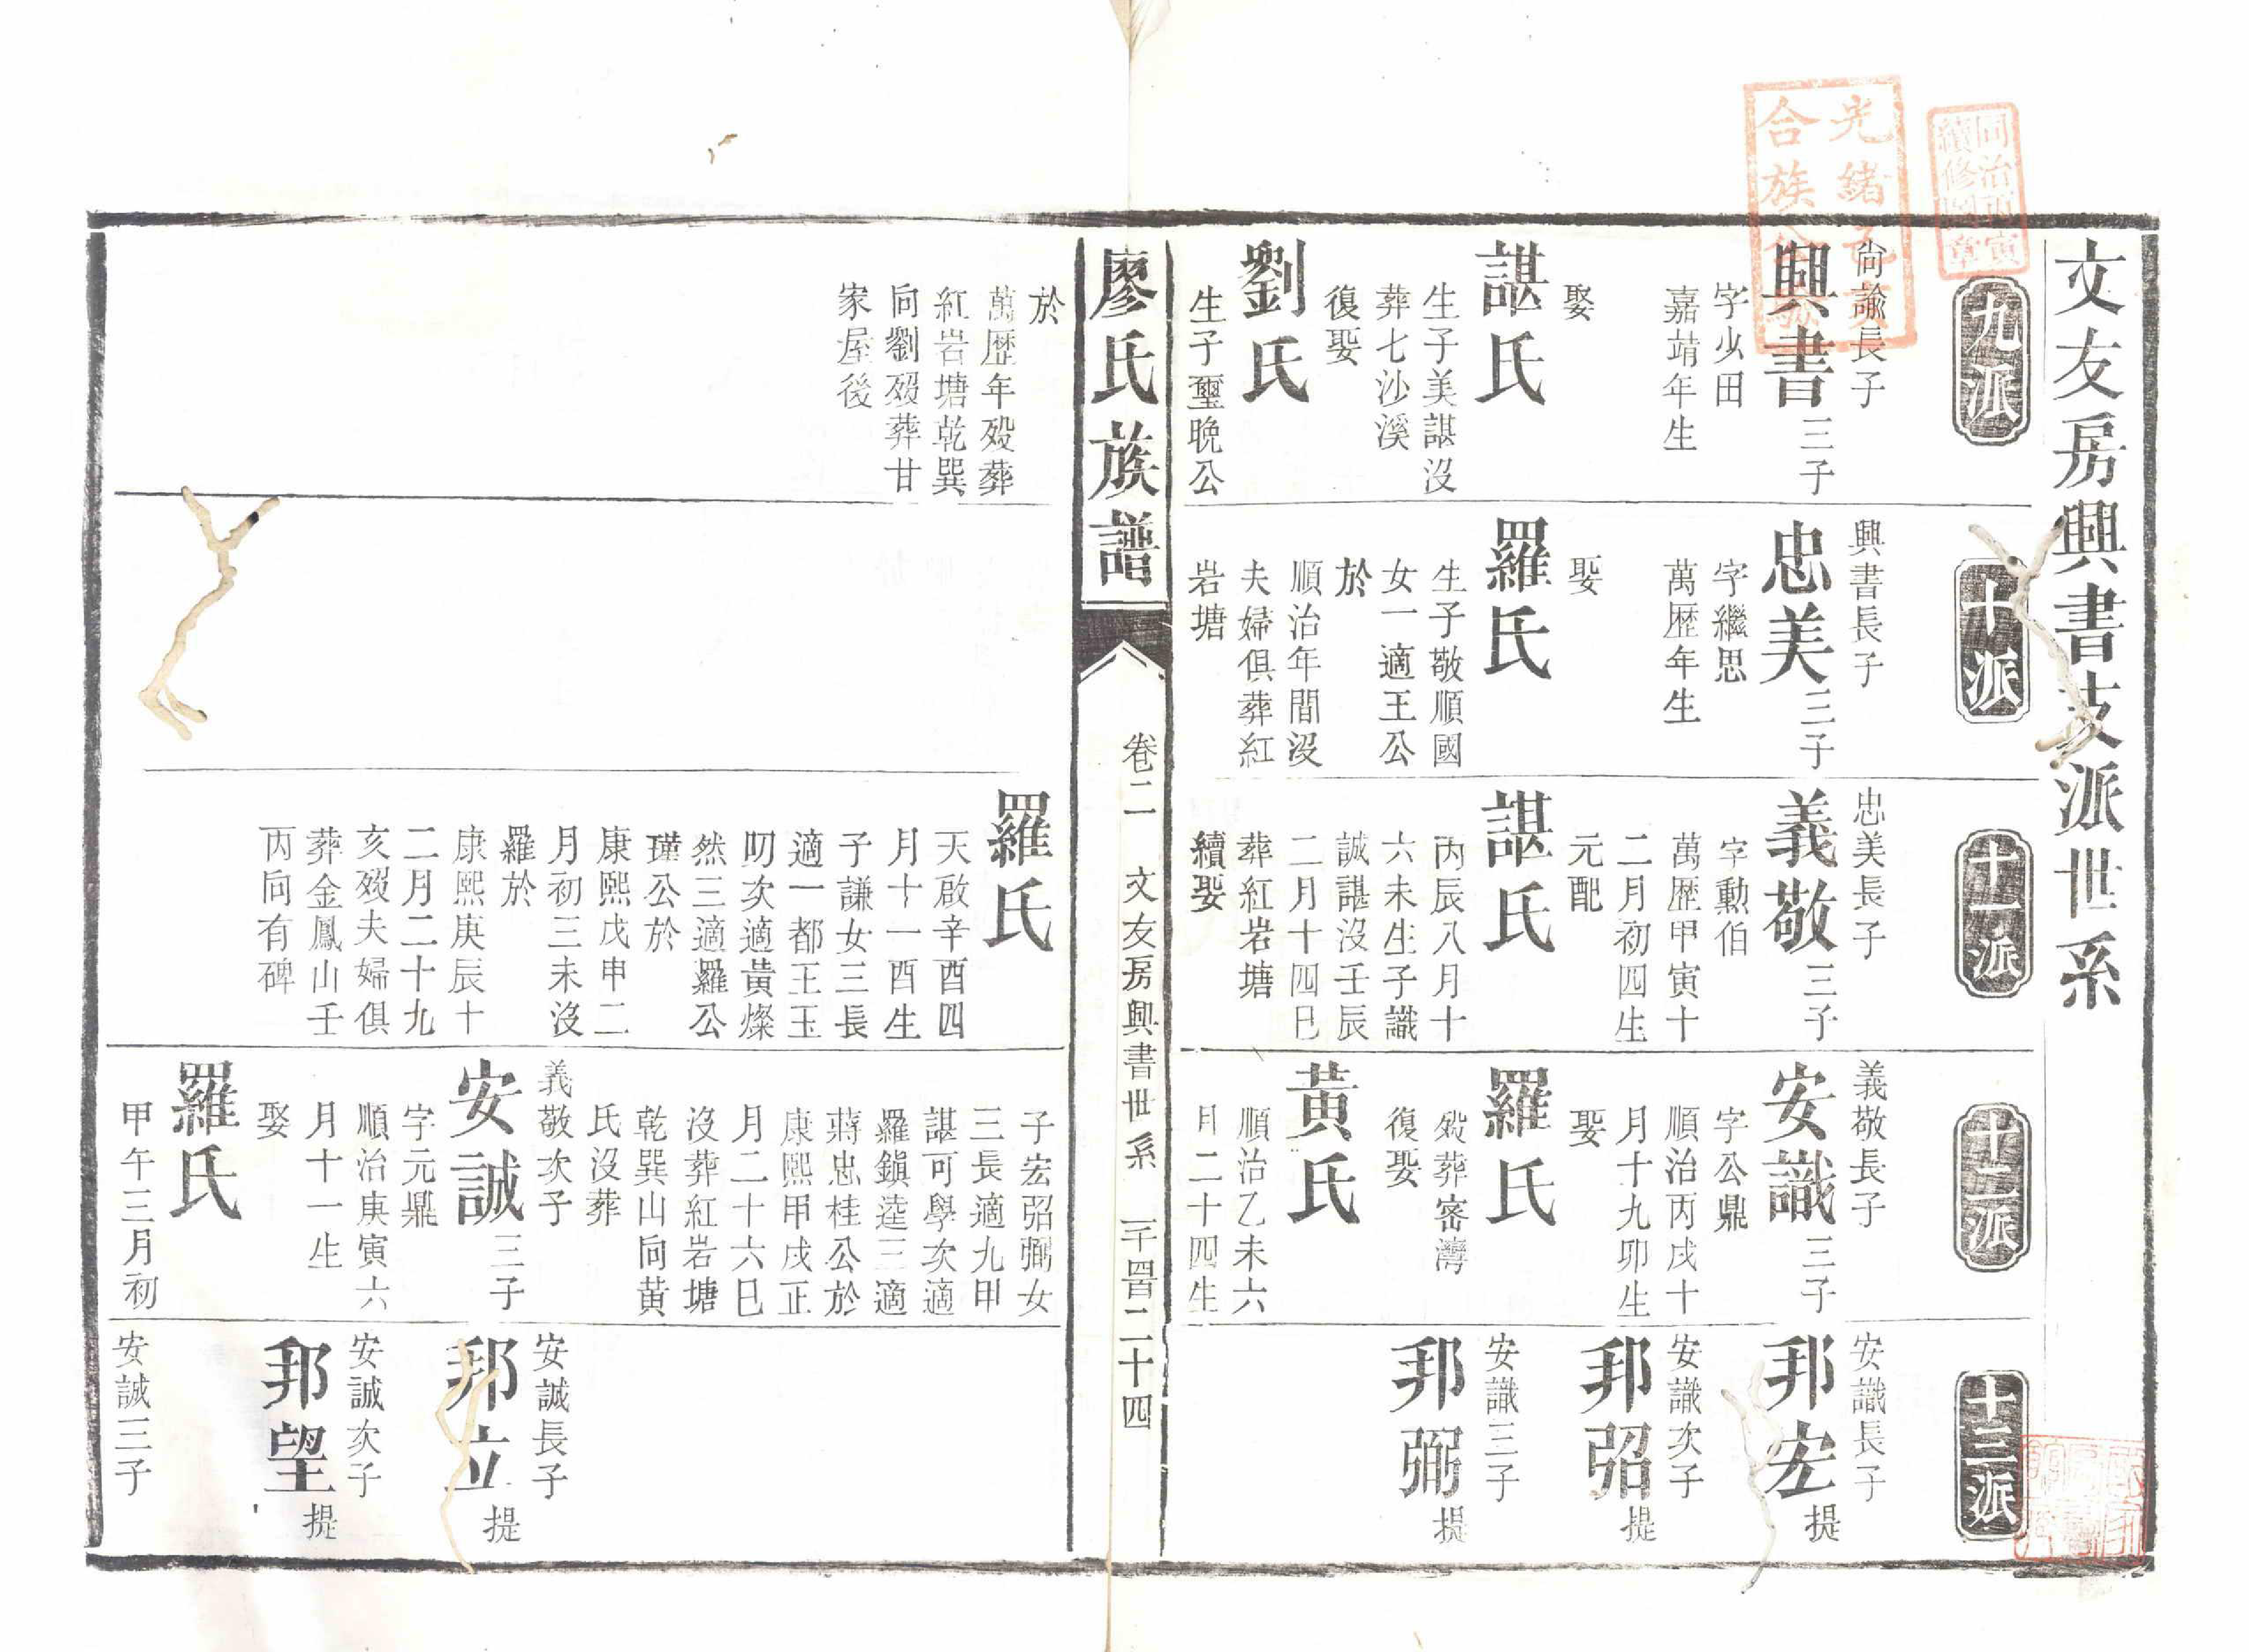 文友房興書支派世系
九派
尙諭長子
興書三子
字少田
嘉靖年生
娶
諶氏
生子美諶沒
葬七沙溪
復娶
劉氏
生子璽晚公
於
萬歷年歿葬
紅岩塘乾巽
向劉歿葬甘
家屋後
十派
興書長子
忠美三子
字繼思
萬歷年生
娶
羅氏
生子敬順國
女一適王公
於
順治年間沒
夫婦俱葬紅
岩塘
十一派
忠美長子
義敬三子
字勳伯
萬歷甲寅十
二月初四生
元配
諶氏
丙辰八月十
六未生子識
誠諶沒壬辰
二月十四巳
葬紅岩塘
續娶
羅氏
天啟辛酉四
月十一酉生
子謙女三長
適一都王玉
叨次適黃燦
然三適羅公
瑾公於
康熙戊申二
月初三未沒
羅於
康熙庚辰十
二月二十九
亥歿夫婦俱
葬金鳳山壬
丙向有碑
十二派
義敬長子
安識三子
字公鼎
順治丙戌十
月十九卯生
娶
羅氏
歿葬密灣
復娶
黃氏
順治乙未六
月二十四生
子宏弨弼女
三長適九甲
諶可學次適
羅鎮逵三適
蔣忠桂公於
康熙甲戌正
月二十六巳
沒葬紅岩塘
乾巽山向黃
氏沒葬
義敬次子
安誠三子
字元鼎
順治庚寅六
月十一生
娶
羅氏
甲午三月初
十三派
安識長子
邦宏提
安識次子
邦弨提
安識三子
邦弼提
安誠長子
邦立提
安誠次子
邦望提
安誠三子
廖氏族譜
卷二 文友房興書世系 二十四
光緒
合族
同治寅
續修章